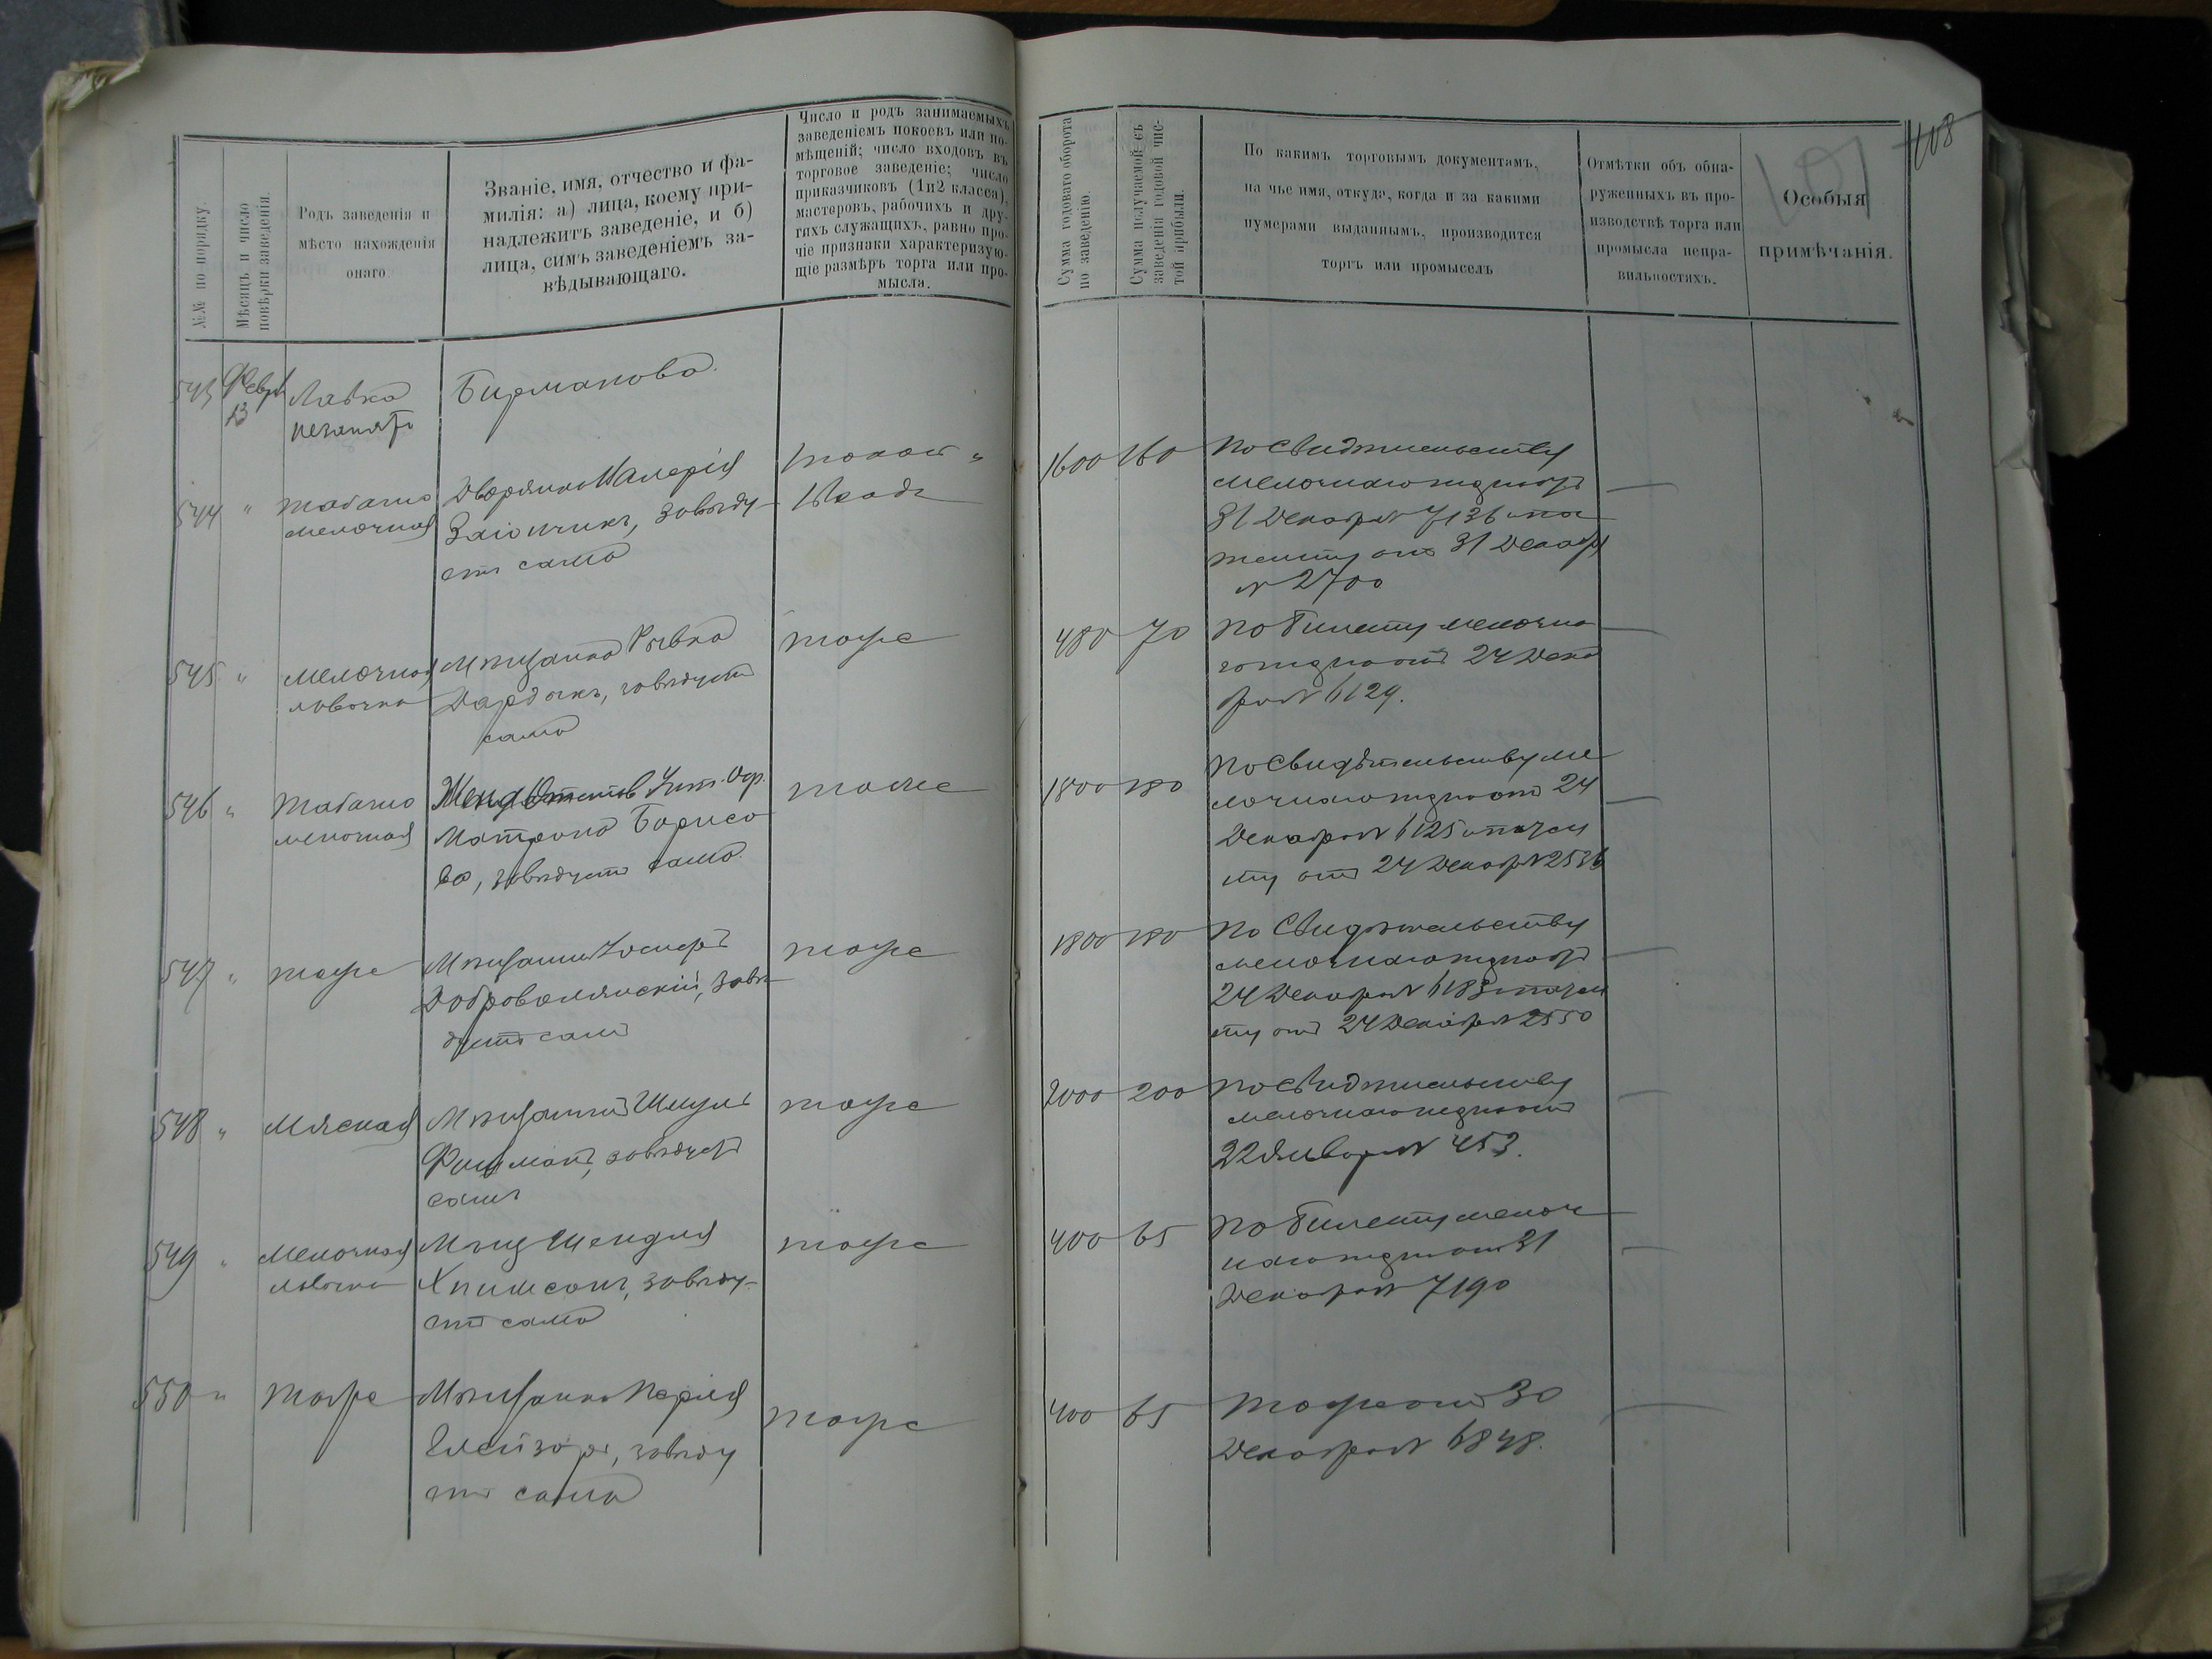 №№ по порядку.
Мѣсяцъ и число
повѣрки заведенія.
Родъ заведенія и
мѣсто нахожденія
онаго.
Званіе, имя, отчество и фа-
милія: а) лица, коему при-
надлежитъ заведеніе, и б)
лица, симъ заведеніемъ за-
вѣдывающаго.
Число и родъ занимаемыхъ
заведеніемъ покоевъ или по-
мѣщеній; число входовъ въ
торговое заведеніе; число
приказчиковъ (1 и 2 класса),
мастеровъ, рабочихъ и дру-
гихъ служащихъ, равно про-
чіе признаки характеризую-
щіе размѣръ торга или про-
мысла.
Сумма годоваго оборота
по заведенію.
Сумма получаемой съ
заведенія годовой чис-
той прибыли.
По какимъ торговымъ документамъ,
на чье имя, откуда, когда и за какими
нумерами выданнымъ, производится
торгъ или промыселъ
Отмѣтки объ обна-
руженныхъ въ про-
изводствѣ торга или
промысла непра-
вильностяхъ.
Особыя
примѣчанія.
107
108
543
Февр
13
Лавка
незанята
Бирманова.
544 "
Табачно
мелочная
Дворянка Валерія
завѣду-
етъ сама
1 покой "
1 входъ
1600 160
По свидѣтельству
мелочнаго торга отъ
31 Декабря № 7136 и па
тенту отъ 31 Декабр
№ 2700
545 "
мелочная
лавочка
Мѣщанка Рывка
завѣдуетъ
сама
тоже
480 70
По билету мелочна
го торга отъ 24 Дека
бря № 6129.
546 "
Табачно
мелочная
Жена
Матрона Борисо
ва, завѣдуетъ сама.
тоже
1800 180
По свидѣтельству ме
лочнаго торга отъ 24
Декабря № 6125 и пате
нту отъ 24 Декабр № 2536
547 "
тоже
Мѣщанинъ Іосифъ
Добровольскій, завѣ
дуетъ самъ
тоже
1800 180
По свидѣтельству
мелочнаго торга отъ
24 Декабря № 6183 и пате
нту отъ 24 Декабря № 2550
548 "
Мясная
Мѣщанинъ Шмуль
Фишманъ, завѣдуетъ
самъ
тоже
2000 200
По свидѣтельству
мелочнаго торга отъ
22 Января № 453.
549 "
Мелочная
лавочка
Мѣщ Шендля
завѣду-
етъ сама
тоже
400 65
По билету мелоч
наго торга отъ 31
Декабря № 7190
550 "
тоже
Мѣщанка Перля
завѣду
етъ сама
тоже
400 65
Тоже отъ 30
Декабря № 6848.